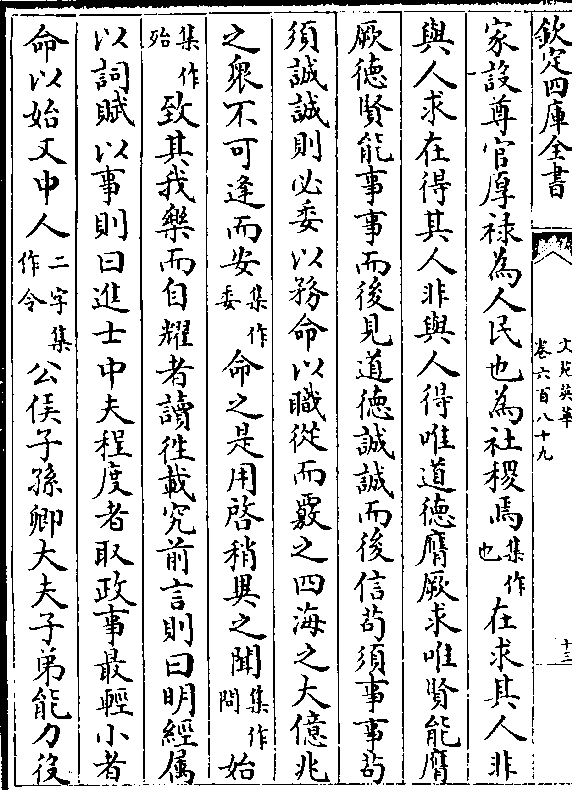 欽定四庫全書
文苑英華
卷六百八十九
十三
家設尊官厚禄為人民也為社稷焉集作也在求其人非
與人求在得其人非與人得唯道德膺厥求唯賢能膺
厥德賢能事事而後見道德誠誠而後信苟須事事苟
須誠誠則必委以務命以職從而覈之四海之大億兆
之衆不可逢而安集作委命之是用啓稍異之聞集作問始
集作殆致其我樂而自耀者讀徃載究前言則曰明經属
以詞賦以事則曰進士中夫程度者取政事最輕小者
命以始文中人二字集作令公侯子孫卿大夫子弟能力役